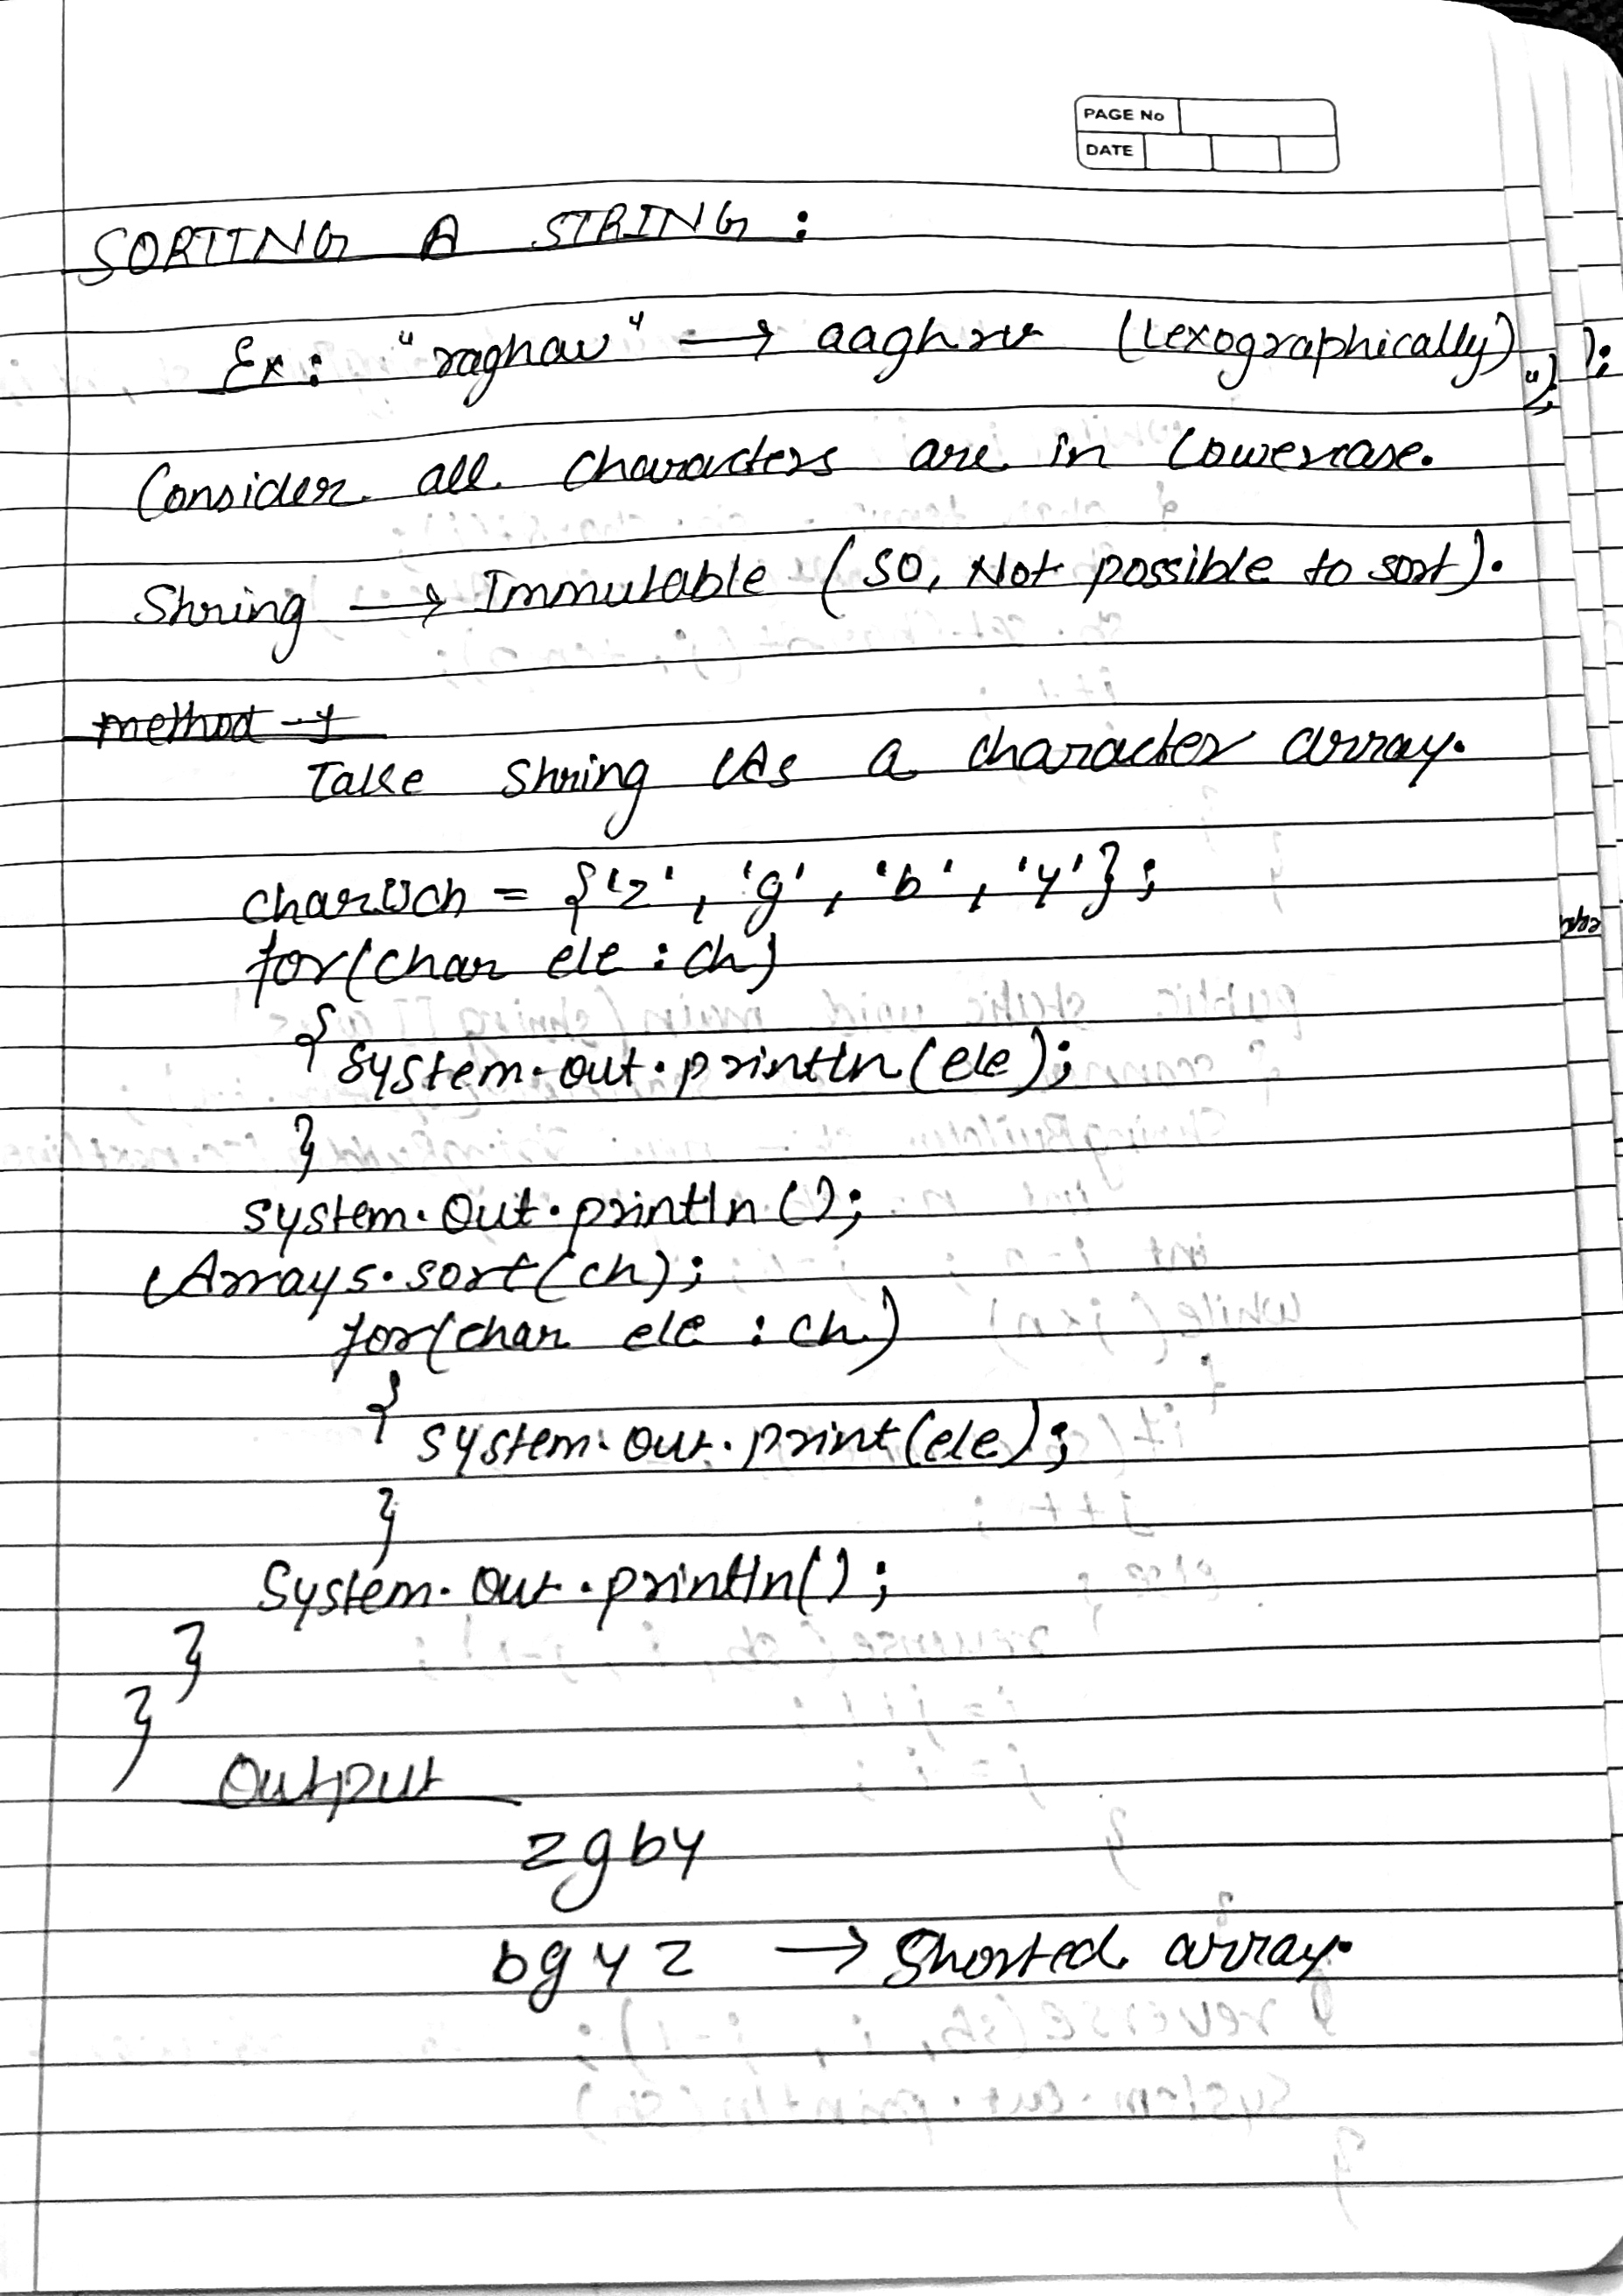 PAGE No
DATE
SORTING A STRING :
Ex : "raghav" → aaghrv (Lexographically)
Consider all characters are in Lowercase.
String → Immutable (SO, Not possible to sort).
method - 1
Take String As a character array.
char[]ch = {'z', 'g', 'b', 'y'};
for(char ele : ch)
{ system.out.println(ele);
}
system.out.println();
Arrays.sort(ch);
for(char ele : ch)
{ system.out.print(ele);
}
System.out.println();
}
}
Output
zgby
bgyz → Shorted array.